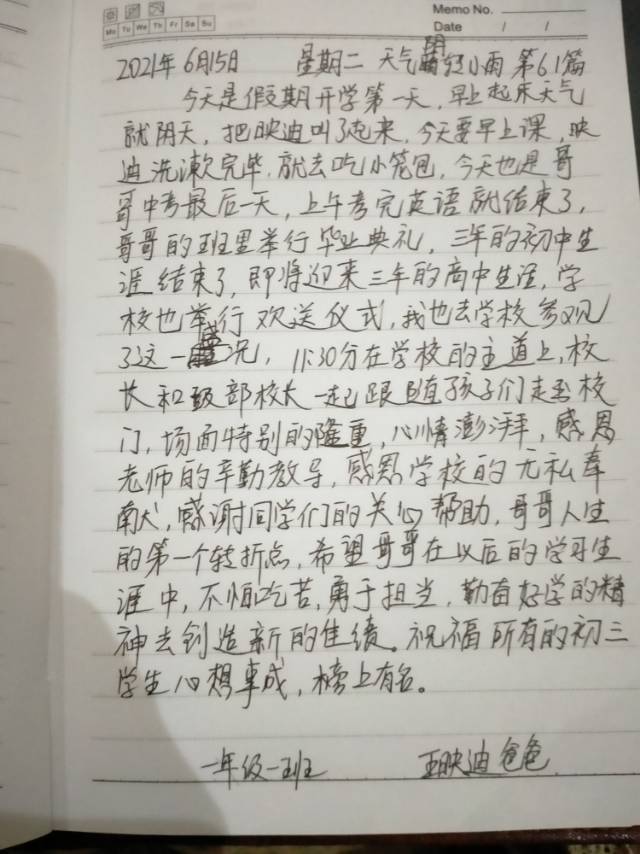 Memo No.
Mo Tu We Th Fr Sa Su
Date / /
2021年6月15日 星期二 天气阴转小雨 第61篇
今天是假期开学第一天，早上起床天气
就阴天，把映迪叫了起来，今天要早上课，映
迪洗漱完毕，就去吃小笼包，今天也是哥
哥中考最后一天，上午考完英语就结束了，
哥哥的班里举行毕业典礼，三年的初中生
涯结束了，即将迎来三年的高中生涯，学
校也举行欢送仪式，我也去学校参观
了这一盛况，11:30分在学校的主道上，校
长和级部校长一起跟随孩子们走到校
门，场面特别的隆重，心情澎湃，感恩
老师的辛勤教导，感恩学校的无私奉
献，感谢同学们的关心帮助，哥哥人生
的第一个转折点，希望哥哥在以后的学习生
涯中，不怕吃苦，勇于担当，勤奋好学的精
神去创造新的佳绩。祝福所有的初三
学生心想事成，榜上有名。
一年级一班 王映迪爸爸